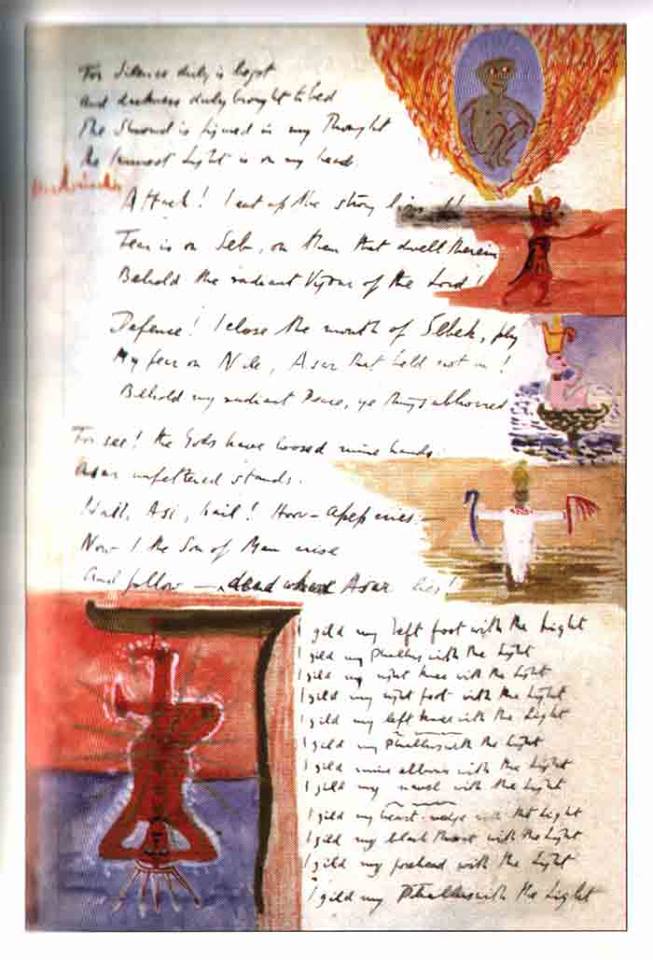 For Silence duly is kept
And darkness duly brought to bed
The Shroud is figured in my Thought
The Inmost Light is on my head.
Attack! I eat up the strong lions. I!
Fear is on Seb, on them that dwell therein
Behold the radiant Vigour of the Lord!
Defense! I close the mouth of Sebek, ply
My fear on Nile, Asar that held not in!
Behold my radiant Peace, ye things abhorred
For see! the Gods have loosed mine hands.
Asar unfettered stands.
Hail, Asi, hail! Hoor-Apep cries -
Now I the Son of Man arise
And follow — dead where Asar lies!
I gild my left foot with the Light
I gild my Phallus with the Light
I gild my right knee with the Light
I gild my right foot with the Light
I gild my left knee with the Light
I gild my Phallus with the Light
I gild mine elbows with the Light
I gild my navel with the Light
I gild my heart-wedge with the Light
I gild my black throat with the Light
I gild my forehead with the Light
I gild my Phallus with the Light